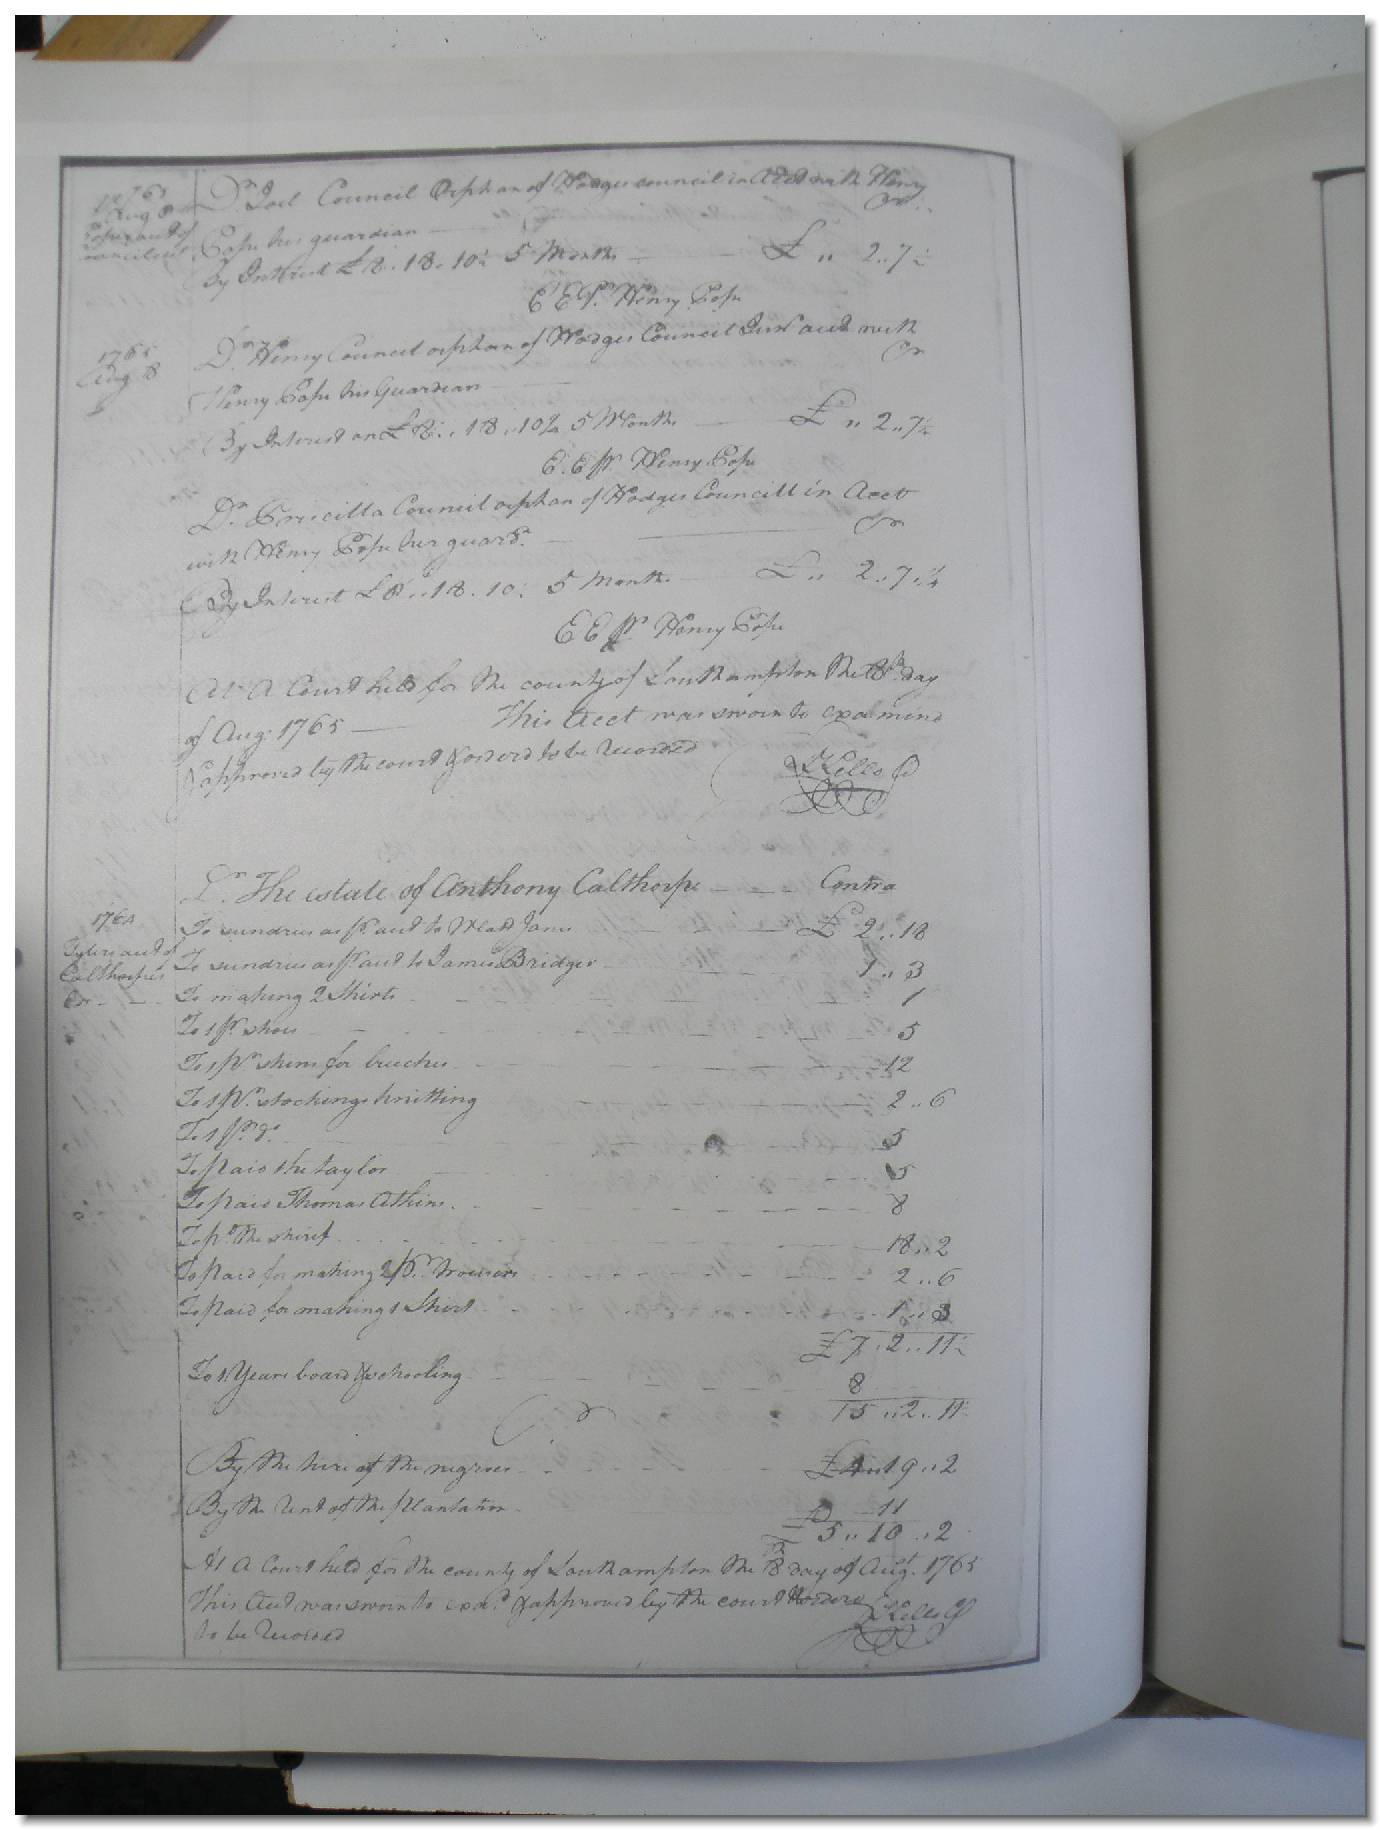 1765
Aug 8
Popes acct of
Dr. Joel Council Orphan of Hodges council in Acct with Henry
Cr
Pope his guardian
By Interest £ 8..18..10½ 5 Months £ ,, 2..7¼
E E pr. Henry Pope
1765
Aug 8
Dr. Henry Council orphan of Hodges Council Junr acct with
Cr
Henry Pope his Guardian
By Interest on £ 8..18..10½ 5 Months £ ,, 2..7¼
E. E pr Henry Pope
Dr. Priscilla Council orphan of Hodges Councill in Acct
with Henry Pope her guard. Cr
By Interest £ 8..18..10 5 Months £ ,, 2..7..¼
E E pr Henry Pope
At A Court held for the county of Southampton the 8th day
of Aug. 1765 This Acct was sworn to examind
& approved by the court & orderd to be recorded
Kello
Dr. The estate of Anthony Calthorpe Contra
1764
acct of
Calthorpes
To sundries as pr acct to £ 2..18
To sundries as pr acct to James Bridger 1..3
To making 2 Shirts 1
To 1 pr. shoes 5
To 1 pr. skins for breeches 12
To 1 pr. stockings knitting 2..6
To 1 pr. do. 5
To paid the taylor 5
To paid Thomas Atkins 8
To pd. the shirif 18..2
To paid for making 2 pr. trousers 2..6
To paid for making 1 Shirt 1..3
£ 7..2..11½
To 1 Years board & schooling 8
15..2..11
Cr
By the hire of the negroes £ 4..19..2
By the rent of the plantation 11
5..10..2
At A Court held for the county of Southampton the 8th day of Augt. 1765
This Acct was sworn to exad. & approved by the court & orderd
to be recorded
Kello